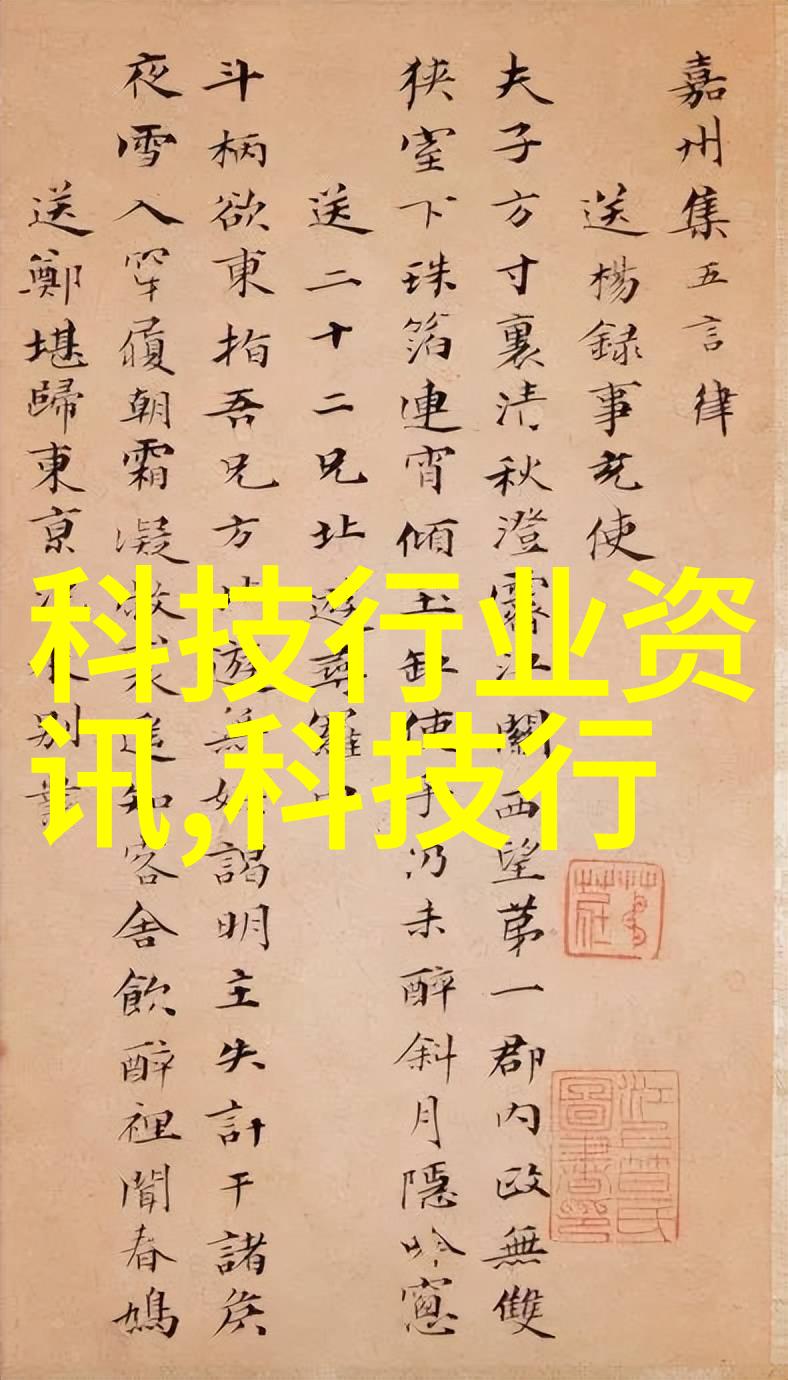 嘉州集五言律
送楊録事充使
夫子方寸裏清秋澄霽江關西望第一郡内政無雙
狹室下珠箔連宵傾玉缸使乎仍未醉斜月隱吟窻
送二十二兄北遊尋羅中
斗柄欲東指吾兄方北遊無媒謁明主失計干諸侯
夜雪入穿履朝霜凝敝裘遥知客舍飲醉裡聞春鳩
送鄭堪歸東京汜水别業
科技行业资
讯,科技行